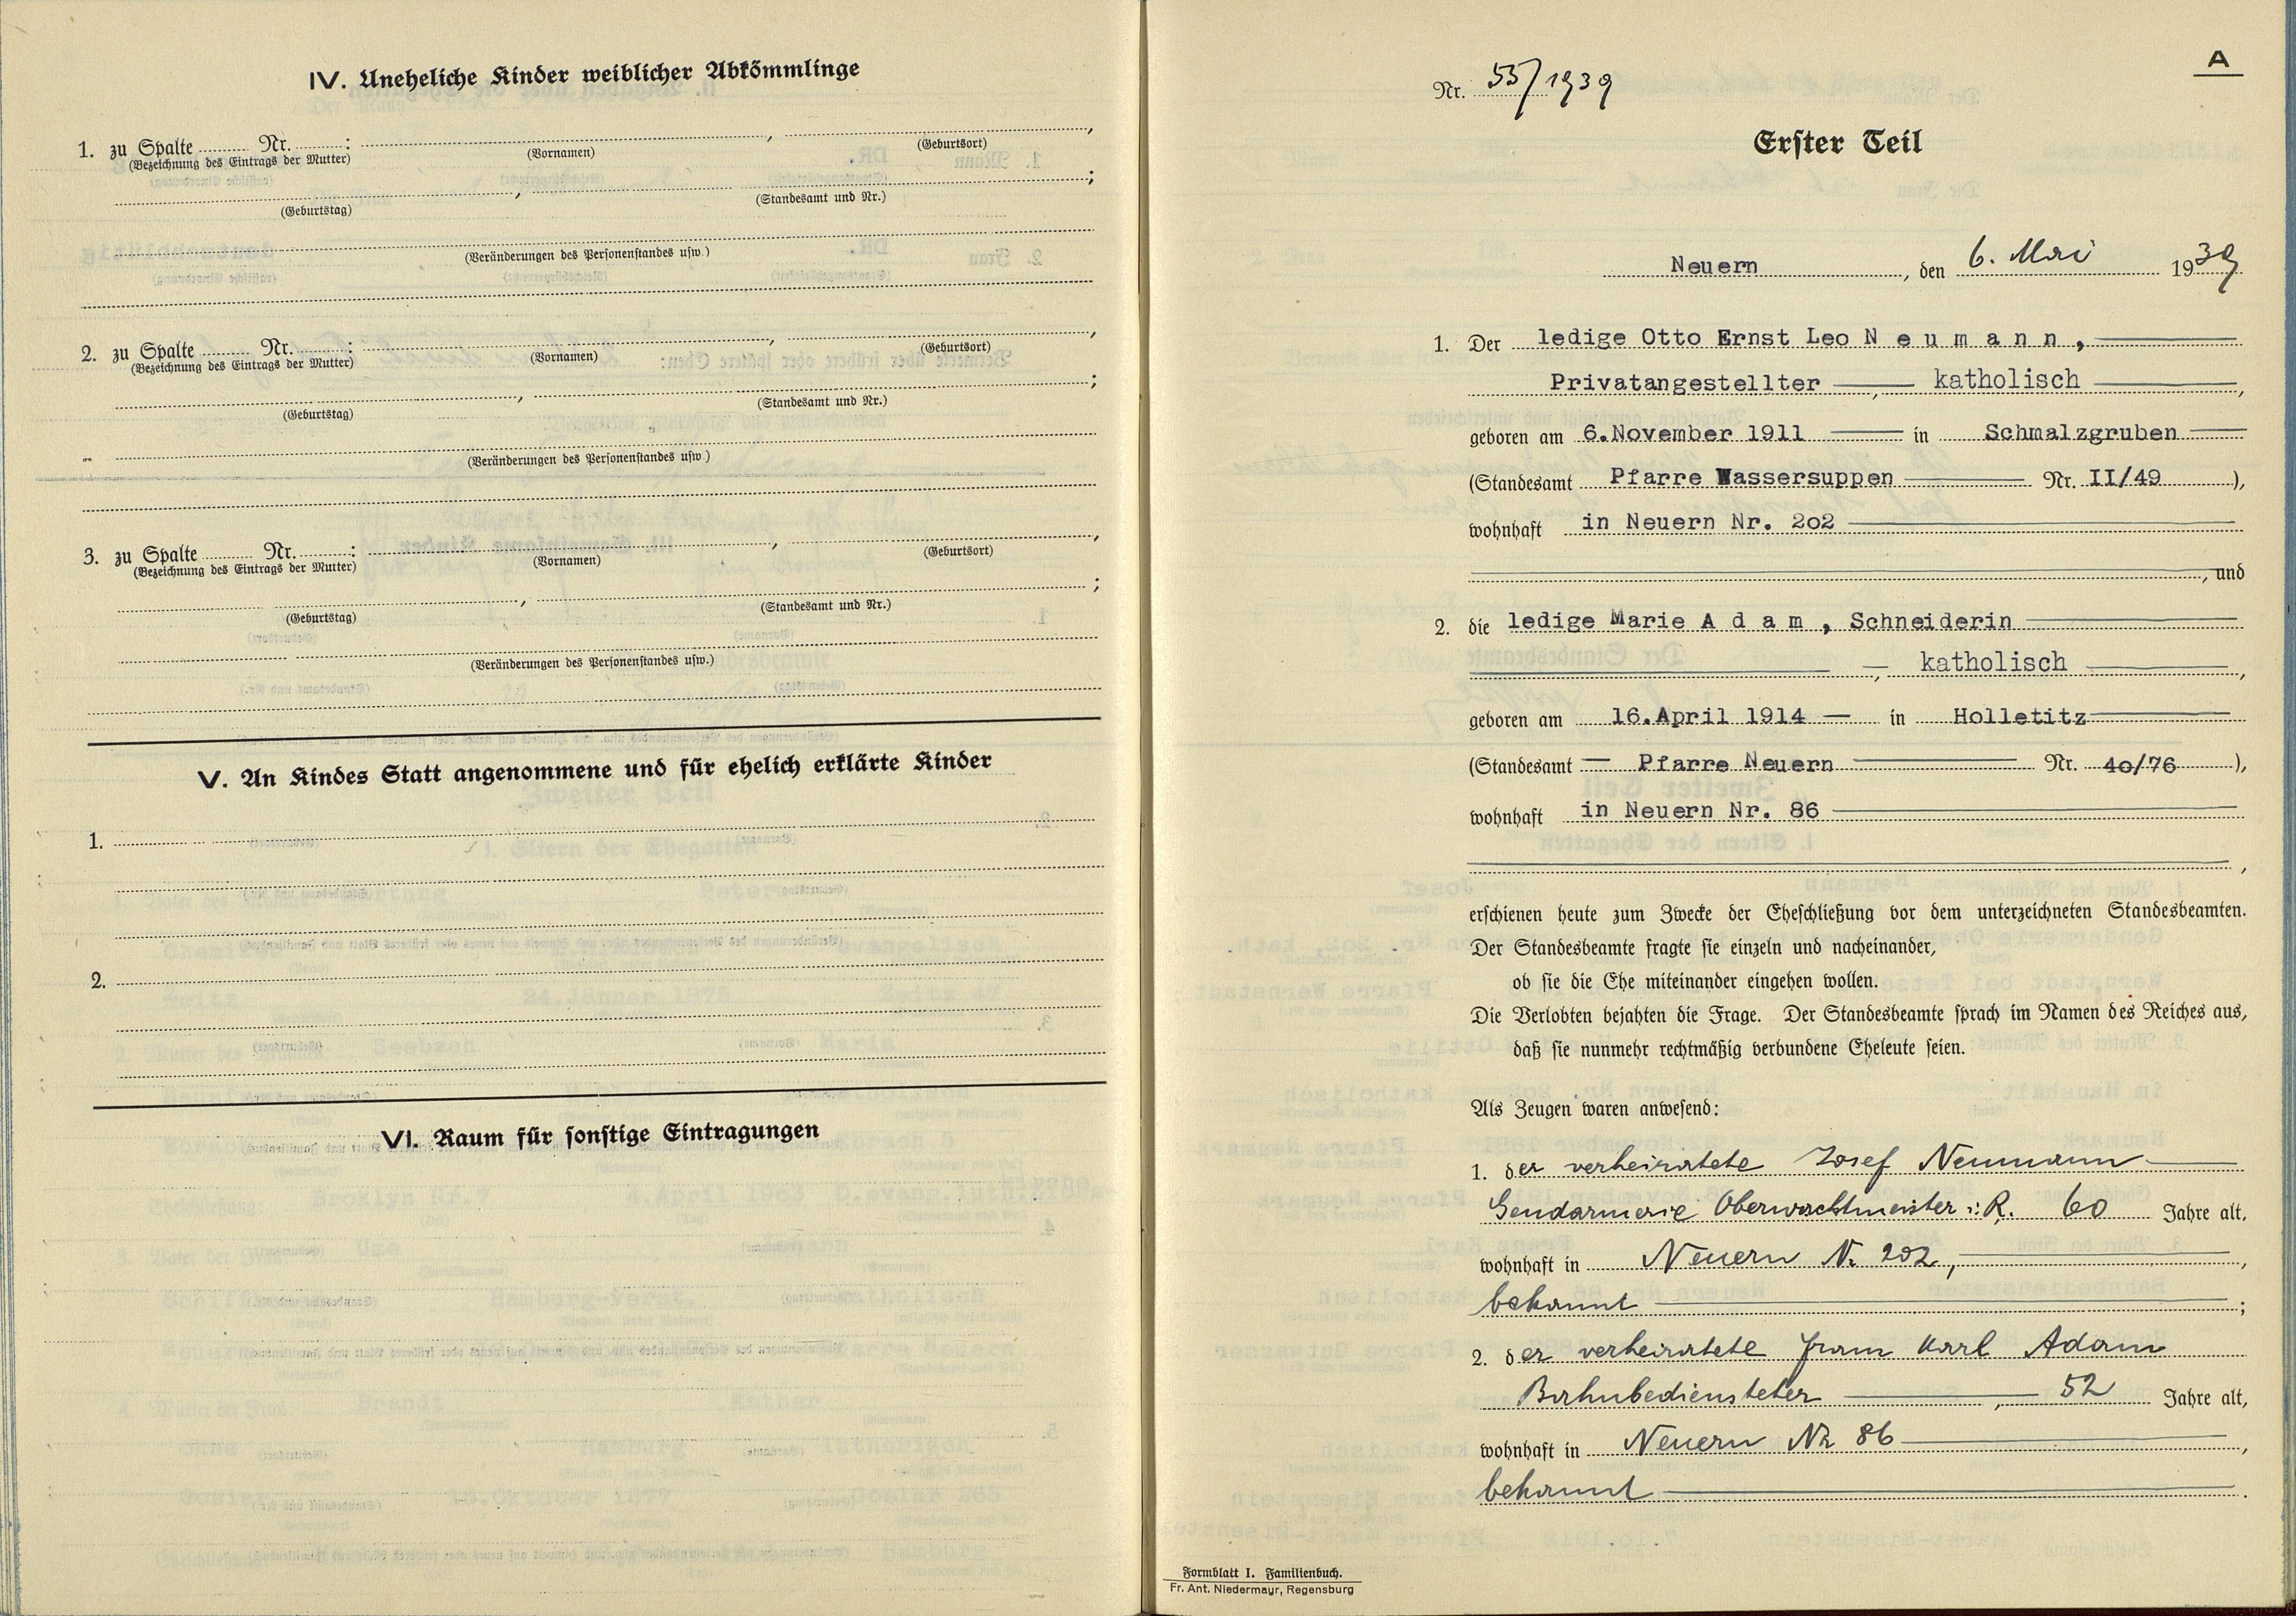 IV. Uneheliche Kinder weiblicher Abkömmlinge
1. zu Spalte ........ Nr. ........: ........, ........,
(Bezeichnung des Eintrags der Mutter) (Vornamen) (Geburtsort)
........, ........;
(Geburtstag) (Standesamt und Nr.)
(Veränderungen des Personenstandes usw.)
2. zu Spalte ........ Nr. ........: ........, ........,
(Bezeichnung des Eintrags der Mutter) (Vornamen) (Geburtsort)
........, ........;
(Geburtstag) (Standesamt und Nr.)
(Veränderungen des Personenstandes usw.)
3. zu Spalte ........ Nr. ........: ........, ........,
(Bezeichnung des Eintrags der Mutter) (Vornamen) (Geburtsort)
........, ........;
(Geburtstag) (Standesamt und Nr.)
(Veränderungen des Personenstandes usw.)
V. An Kindes Statt angenommene und für ehelich erklärte Kinder
1.
2.
VI. Raum für sonstige Eintragungen
A
Nr. 55/1939
Erster Teil
Neuern, den 6. Mai 1939
1. Der ledige Otto Ernst Leo N e u m a n n ,
Privatangestellter , katholisch ,
geboren am 6.November 1911 in Schmalzgruben
(Standesamt Pfarre Wassersuppen Nr. II/49 ),
wohnhaft in Neuern Nr. 2o2
, und
2. die ledige Marie A d a m , Schneiderin
, katholisch ,
geboren am 16.April 1914 in Holletitz
(Standesamt Pfarre Neuern Nr. 4o/76 ),
wohnhaft in Neuern Nr. 86
,
erschienen heute zum Zwecke der Eheschließung vor dem unterzeichneten Standesbeamten.
Der Standesbeamte fragte sie einzeln und nacheinander,
ob sie die Ehe miteinander eingehen wollen.
Die Verlobten bejahten die Frage. Der Standesbeamte sprach im Namen des Reiches aus,
daß sie nunmehr rechtmäßig verbundene Eheleute seien.
Als Zeugen waren anwesend:
1. der verheiratete Josef Neumann
Gendarmerie Oberwachtmeister i. R. 60 Jahre alt,
wohnhaft in Neuern Nr 202, ,
bekannt ;
2. der verheiratete Franz Karl Adam
Bahnbediensteter , 52 Jahre alt,
wohnhaft in Neuern Nr 86 ,
bekannt .
Formblatt I. Familienbuch.
Fr. Ant. Niedermayr, Regensburg